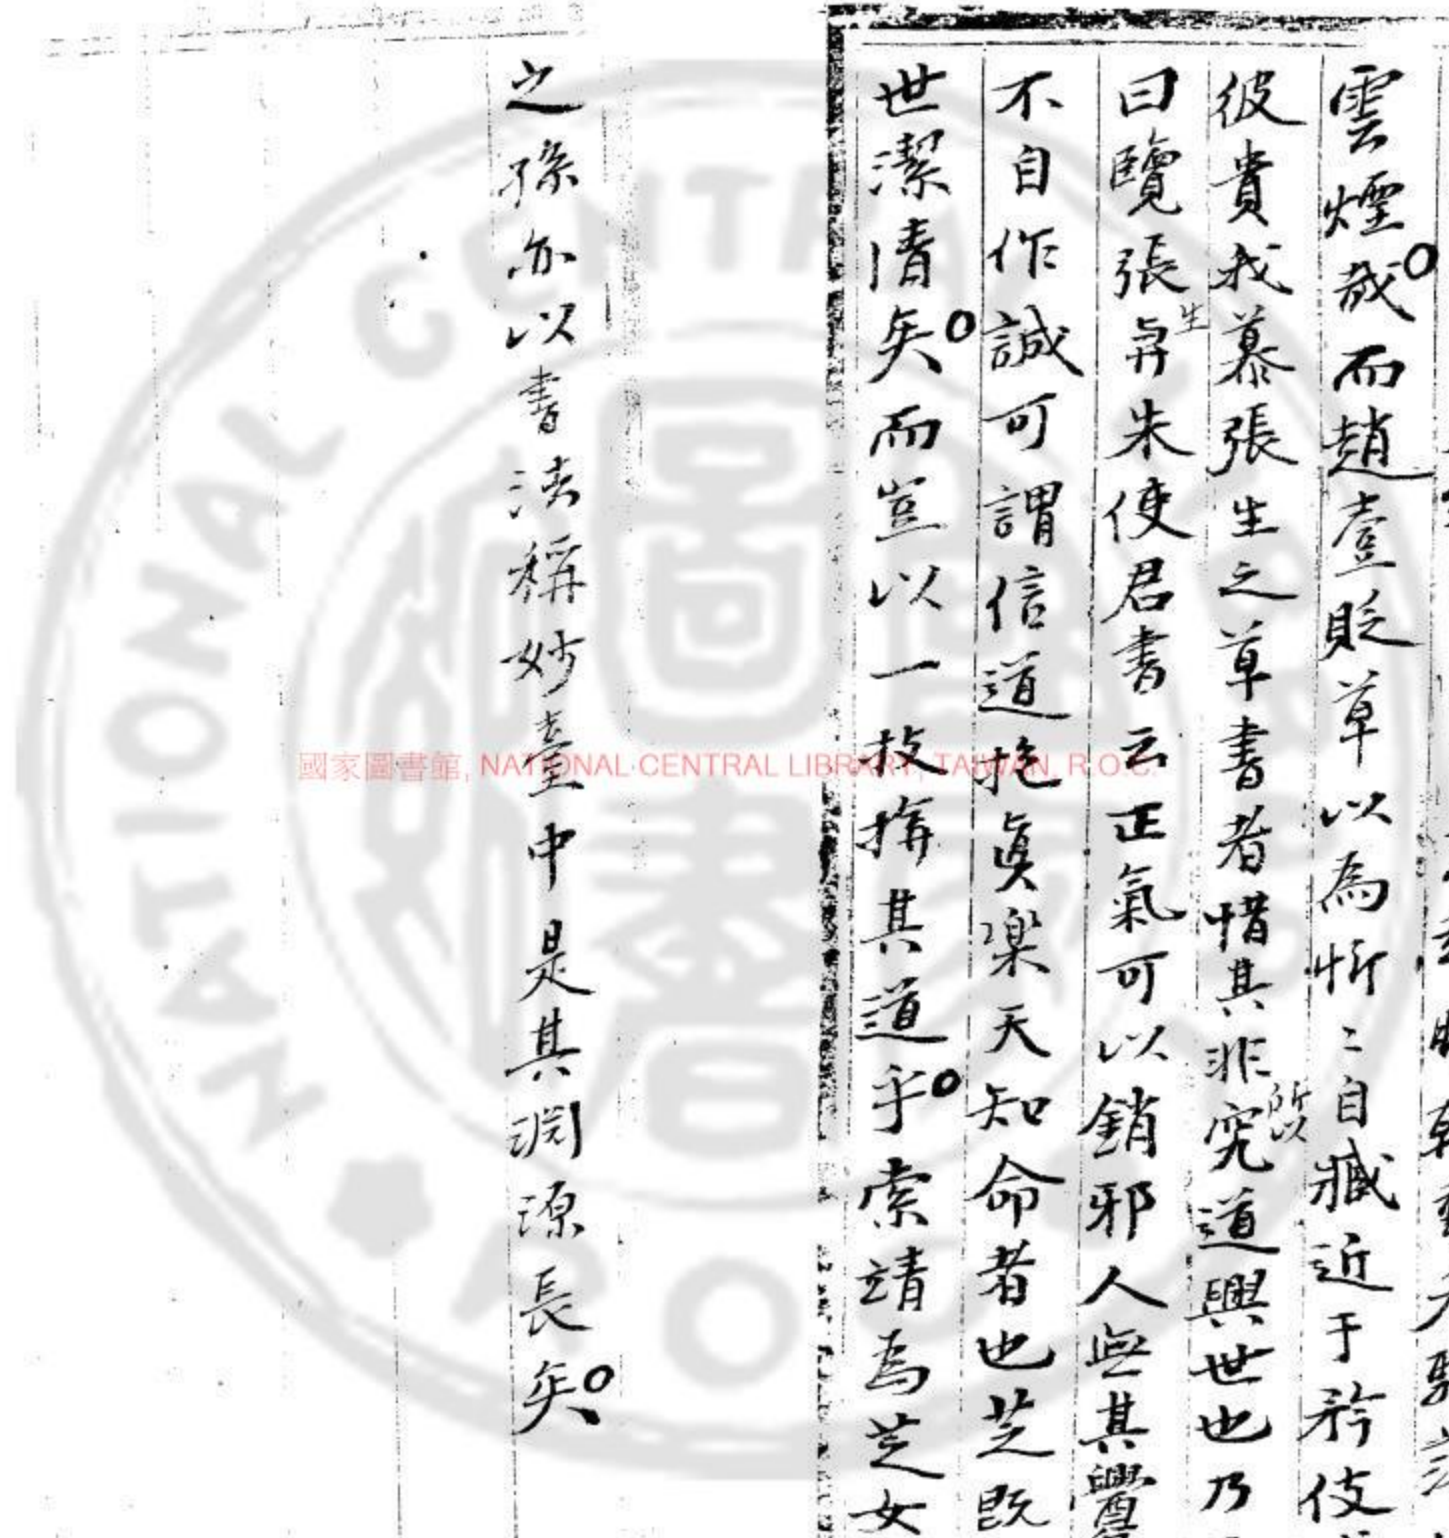 雲煙哉。而趙壹貶草以為忻〻自臧近于矜伎
彼貴我慕張生之草書者惜其非所以究道興世也乃
曰覽張生與朱使君書云正氣可以銷邪人無其釁
不自作誠可謂信道抱真樂天知命者也芝既
世潔清矣。而豈以一技掩其道乎。索靖為芝女
之孫亦以書法稱妙臺中是其淵源長矣。
國家圖書館, NATIONAL CENTRAL LIBRARY, TAIWAN, R.O.C.
NATIONAL CENTRAL
ROC